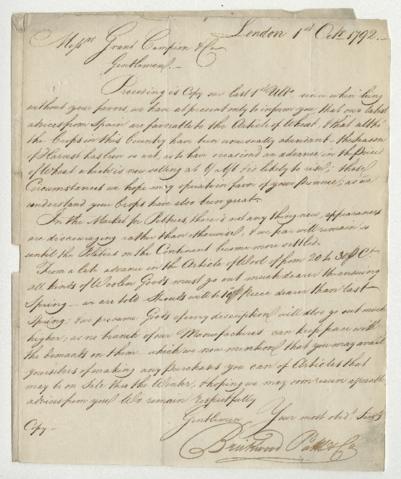 London 1st Octr. 1792
Messrs Grant Campion & Co
Gentlemen
Preceeding is Copy our last 1st Ulto. since when being
without your favors, we have at present only to inform you that our latest
advices from Spain are favorable to the Article of Wheat, & that altho
the Crops in this Country have been unusually abundant the season
of Harvest has been so wet, as to have occasioned an advance in the Price
of Wheat which is now selling at & likely to rise; these
Circumstances we hope may operate in favor of your Province, as we
understand your Crops have also been great.
In the Market for Peltries there is not any thing new, appearances
are discouraging rather than otherwise, & we fear will remain so
until the States on the Continent become more settled.
From a late advance in the Article of Wool of from 20 to 30 Ct.
all kinds of Woolen Goods must go out much dearer the ensuing
Spring we are told Strouds will be Piece dearer than last
Spring, & we presume Goods of every description will also go out much
higher, as no branch of our Manufactures can keep pace with
the demands on them which we now mention that you may avail
yourselves of making any purchases you can of Articles that
may be on Sale this the Winter, & hoping we may soon receive
advices from you We remain respectfully
Gentlemen Your most obdt. Servts
Copy Brickwood Pattle & Co